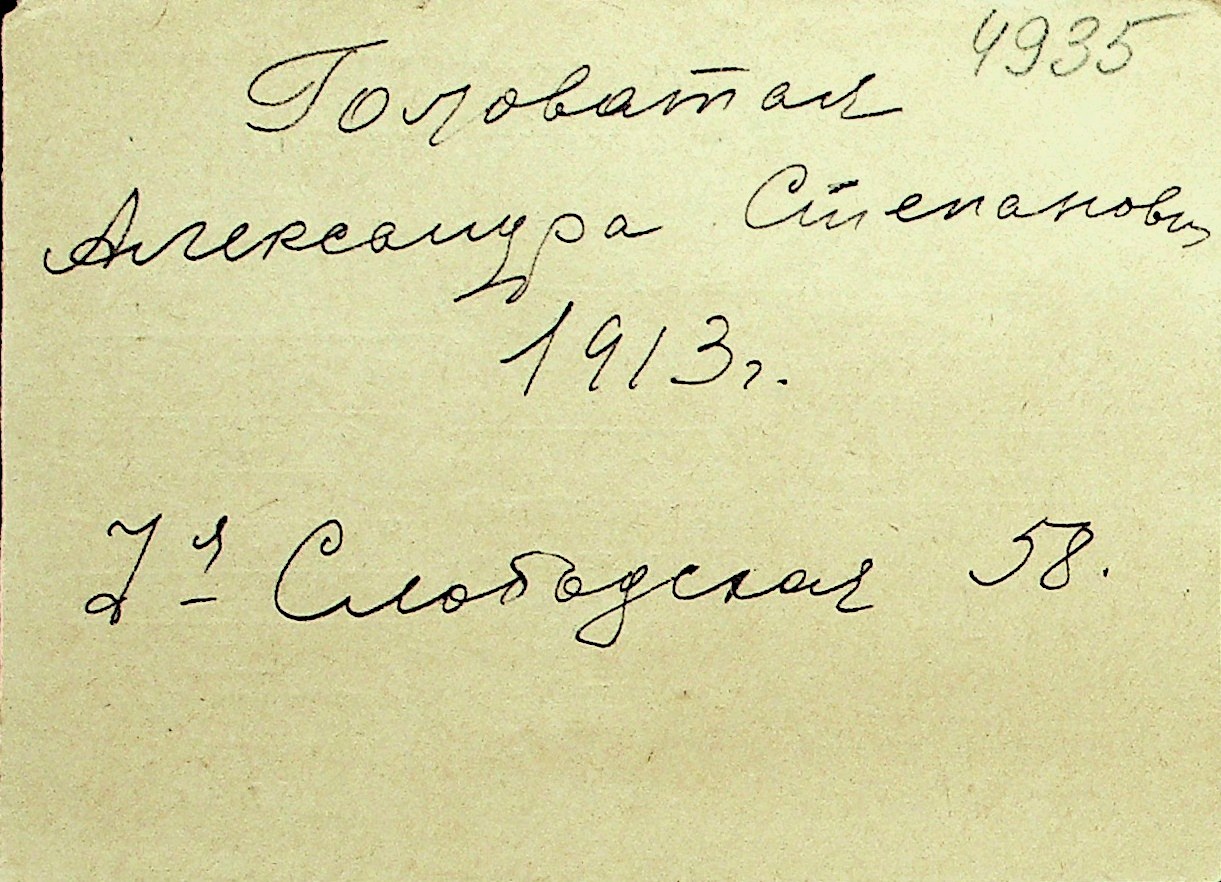 4935
Головатая
Александра Степановн
1913 г.
2я Слободская 58.